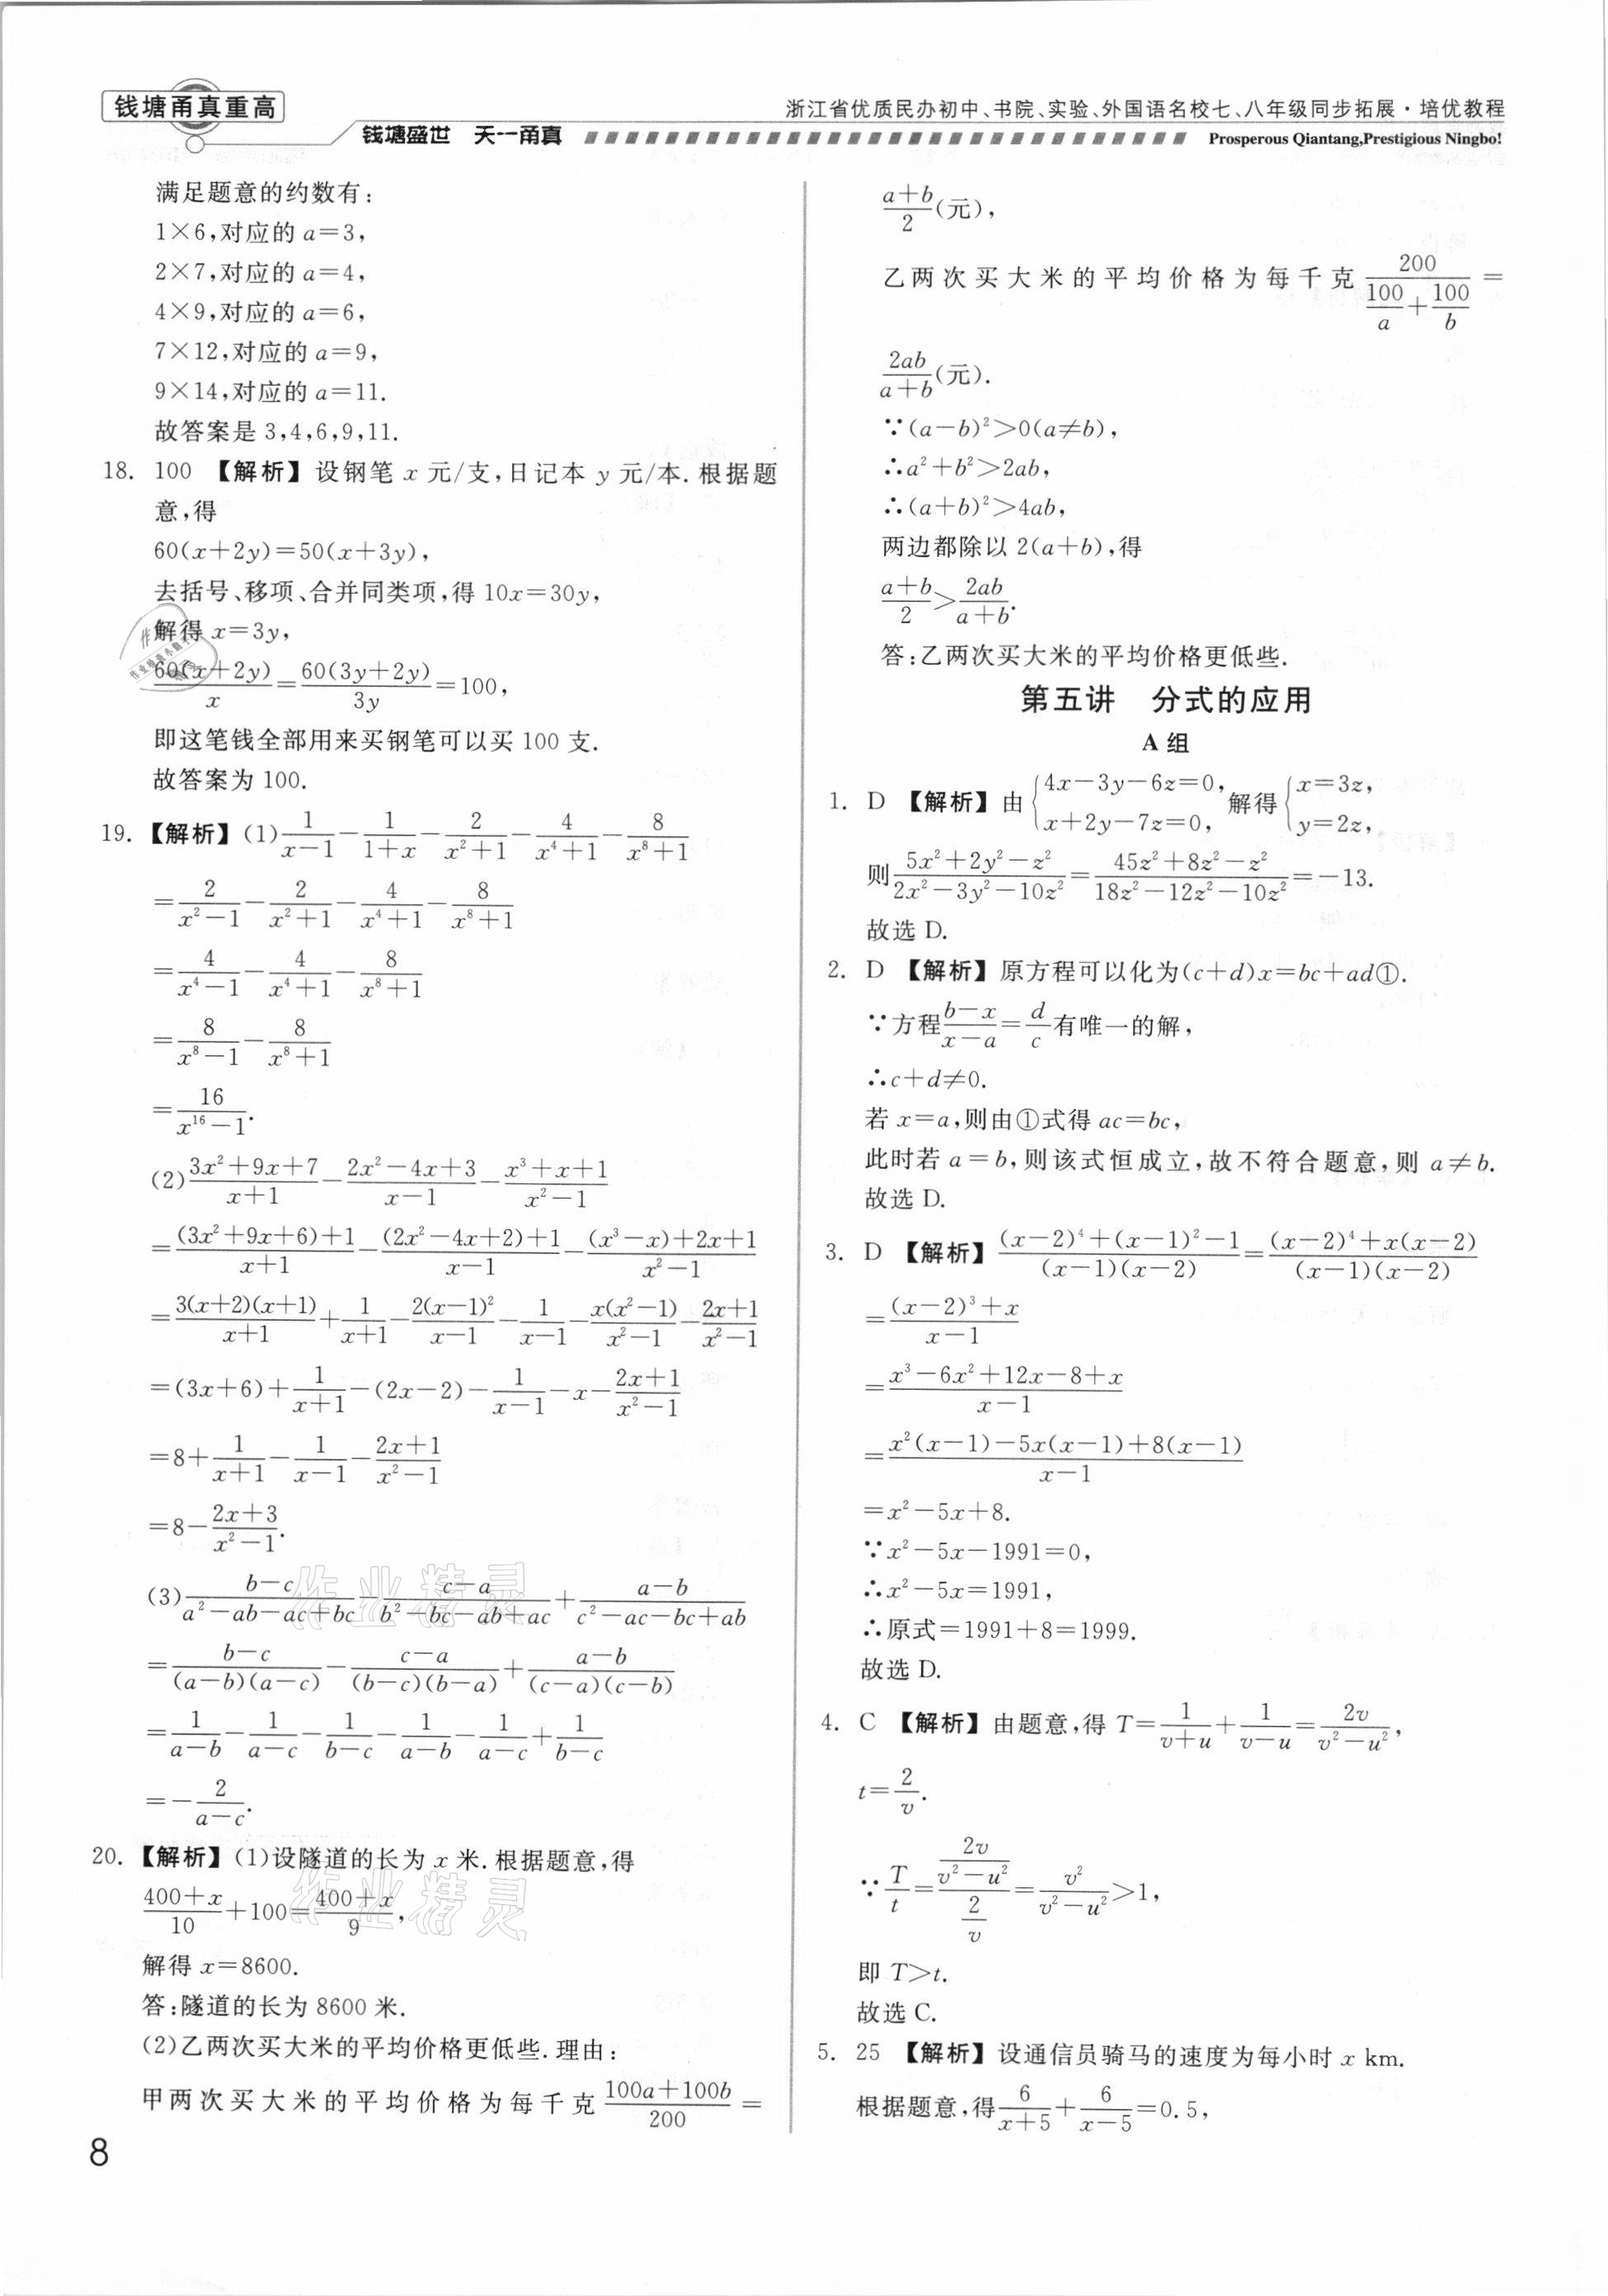 钱塘甬真重高
浙江省优质民办初中、书院、实验、外国语名校七、八年级同步拓展·培优教程
钱塘盛世 天一甬真
Prosperous Qiantang,Prestigious Ningbo!
满足题意的约数有:
1×6,对应的 a=3,
2×7,对应的 a=4,
4×9,对应的 a=6,
7×12,对应的 a=9,
9×14,对应的 a=11.
故答案是 3,4,6,9,11.
18. 100 【解析】设钢笔 x 元/支,日记本 y 元/本.根据题
意,得
60(x+2y)=50(x+3y),
去括号、移项、合并同类项,得 10x=30y,
解得 x=3y,
60(x+2y)/x=60(3y+2y)/3y=100,
即这笔钱全部用来买钢笔可以买 100 支.
故答案为 100.
19. 【解析】(1) 1/(x-1) - 1/(1+x) - 2/(x²+1) - 4/(x⁴+1) - 8/(x⁸+1)
= 2/(x²-1) - 2/(x²+1) - 4/(x⁴+1) - 8/(x⁸+1)
= 4/(x⁴-1) - 4/(x⁴+1) - 8/(x⁸+1)
= 8/(x⁸-1) - 8/(x⁸+1)
= 16/(x¹⁶-1).
(2) (3x²+9x+7)/(x+1) - (2x²-4x+3)/(x-1) - (x³+x+1)/(x²-1)
= ((3x²+9x+6)+1)/(x+1) - ((2x²-4x+2)+1)/(x-1) - ((x³-x)+2x+1)/(x²-1)
= 3(x+2)(x+1)/(x+1) + 1/(x+1) - 2(x-1)²/(x-1) - 1/(x-1) - x(x²-1)/(x²-1) - (2x+1)/(x²-1)
=(3x+6)+ 1/(x+1) -(2x-2)- 1/(x-1) -x- (2x+1)/(x²-1)
=8+ 1/(x+1) - 1/(x-1) - (2x+1)/(x²-1)
=8- (2x+3)/(x²-1).
(3) (b-c)/(a²-ab-ac+bc) - (c-a)/(b²-bc-ab+ac) + (a-b)/(c²-ac-bc+ab)
= (b-c)/((a-b)(a-c)) - (c-a)/((b-c)(b-a)) + (a-b)/((c-a)(c-b))
= 1/(a-b) - 1/(a-c) - 1/(b-c) - 1/(a-b) - 1/(a-c) + 1/(b-c)
=- 2/(a-c).
20. 【解析】(1)设隧道的长为 x 米.根据题意,得
(400+x)/10 +100= (400+x)/9,
解得 x=8600.
答:隧道的长为 8600 米.
(2)乙两次买大米的平均价格更低些.理由:
甲两次买大米的平均价格为每千克 (100a+100b)/200 =
8
(a+b)/2 (元),
乙两次买大米的平均价格为每千克 200/(100/a+100/b) =
2ab/(a+b) (元).
∵(a-b)²>0(a≠b),
∴a²+b²>2ab,
∴(a+b)²>4ab,
两边都除以 2(a+b),得
(a+b)/2 > 2ab/(a+b).
答:乙两次买大米的平均价格更低些.
第五讲 分式的应用
A 组
1. D 【解析】由 {4x-3y-6z=0, x+2y-7z=0, 解得 {x=3z, y=2z,
则 (5x²+2y²-z²)/(2x²-3y²-10z²) = (45z²+8z²-z²)/(18z²-12z²-10z²) =-13.
故选 D.
2. D 【解析】原方程可以化为(c+d)x=bc+ad①.
∵方程 (b-x)/(x-a) = d/c 有唯一的解,
∴c+d≠0.
若 x=a,则由①式得 ac=bc,
此时若 a=b,则该式恒成立,故不符合题意,则 a≠b.
故选 D.
3. D 【解析】 ((x-2)⁴+(x-1)²-1)/((x-1)(x-2)) = ((x-2)⁴+x(x-2))/((x-1)(x-2))
= ((x-2)³+x)/(x-1)
= (x³-6x²+12x-8+x)/(x-1)
= (x²(x-1)-5x(x-1)+8(x-1))/(x-1)
=x²-5x+8.
∵x²-5x-1991=0,
∴x²-5x=1991,
∴原式=1991+8=1999.
故选 D.
4. C 【解析】由题意,得 T= 1/(v+u) + 1/(v-u) = 2v/(v²-u²),
t= 2/v.
∵ T/t = (2v/(v²-u²))/(2/v) = v²/(v²-u²) >1,
即 T>t.
故选 C.
5. 25 【解析】设通信员骑马的速度为每小时 x km.
根据题意,得 6/(x+5) + 6/(x-5) =0.5,
作业精灵
作业精灵